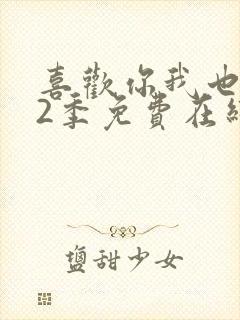 喜歡你我也
2季免費在線
盬甜少女